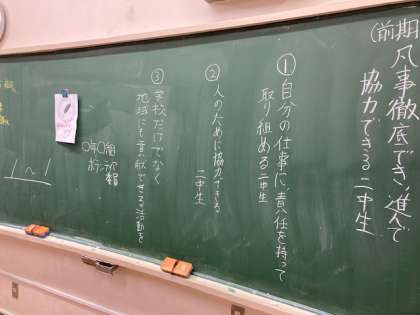 (前期)
凡事徹底でき、進んで
協力できる二中生
① 自分の仕事に、責任を持って
取り組める二中生
② 人のために協力できる
二中生
③ 学校だけでなく
地域にも貢献できる活動を
〇年〇組
ボランティア
1〜1